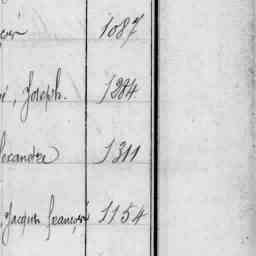 1087
, Joseph. 1284
lexandre 1311
, Jacques François 1154